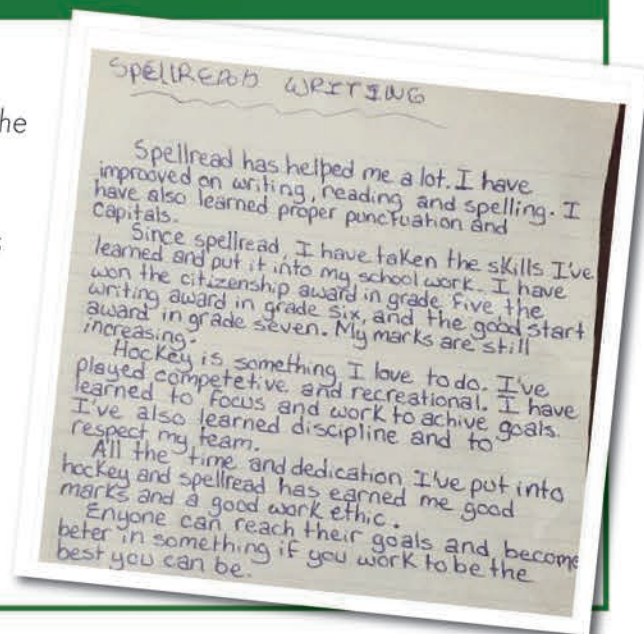 he
s
SPELLREADD WRITING
Spellread has helped me a lot. I have
improoved on writing, reading and spelling. I
have also learned proper punctuation and
capitals.
Since spellread, I have taken the skills I've
learned and put it into my school work. I have
won the citizenship award in grade five the
writing award in grade six, and the good start
award in grade seven. My marks are still
increasing.
Hockey is something I love to do. I've
played competetive and recreational. I have
learned to focus and work to achive goals.
I've also learned discipline and to
respect my team.
All the time and dedication I've put into
hockey and spellread has earned me good
marks and a good work ethic.
Enyone can reach their goals and become
beter in something if you work to be the
best you can be.